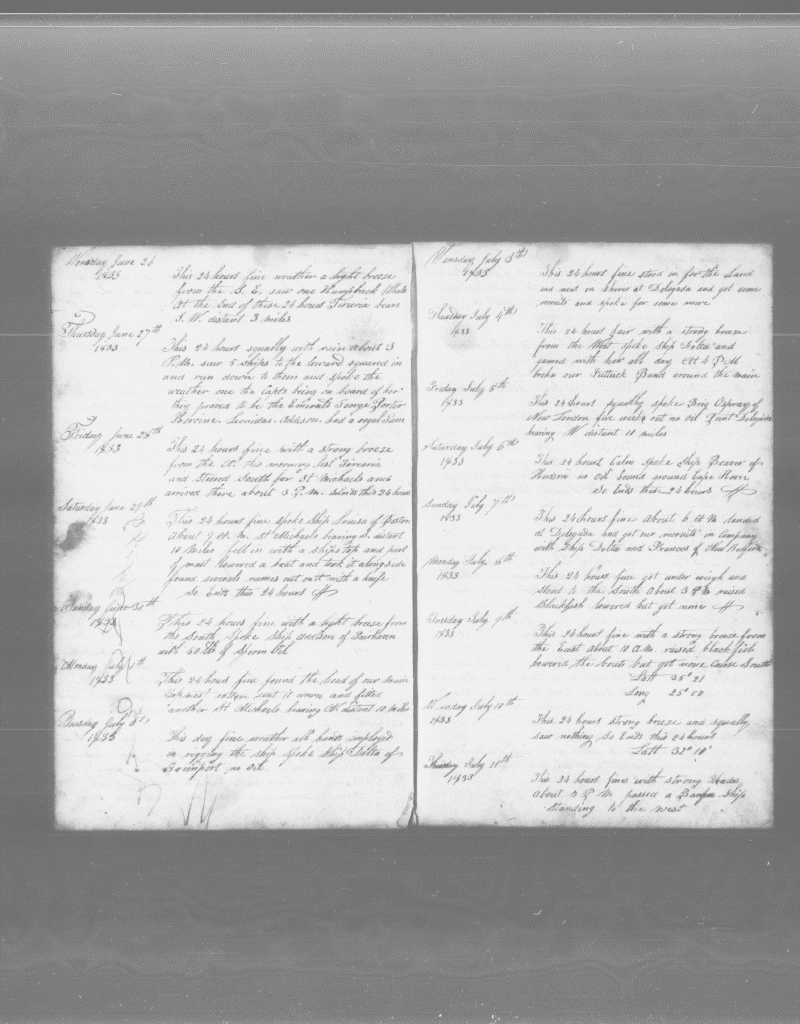 Wensday June 26
1833
This 24 hours fine weather a light breeze
from the S. E. saw one Humpback Whale
At the End of these 24 hours Terceria bears
S. W. distant 3 miles
Thursday June 27th
1833
This 24 hours squally with rain about 3
P.M. saw 5 ships to the leward squared in
and run down to them and spoke the
weather one the Capts being on board of her
they proved to be the Emerald George Porter
Leonidas Addison had a royal
Friday June 28th
1833
This 24 hours fine with a strong breeze
from the this morning left Terceria
and Steered South for St Michaels and
arrived there about 3 P.M. this 24 hours
Saturday June 29th
1833
This 24 hours fine spoke ship Louisa of
about 7 A. M. St Michaels bearing S. distant
10 Miles fell in with a ships top and part
of mast lowered a boat and took it alongside
found severals names cut out with a knife
So Ends this 24 hours
Sunday June 30th
1833
This 24 hours fine with a light breeze from
the South spoke Ship Addison of Fairhaven
with 50 of Sperm Oil
Monday July 1th
1833
This 24 hours fine found the head of our main
rotten sent it down and fitted
another St Michaels bearing distant 10 miles
Tuesday July 2d
1833
This day fine weather all hands employd
in rigging the ship spoke Ship Delta of
no oil
Wensday July 3th
1833
This 24 hours fine stood in for the Land
and went on shore at Delegada and got some
recruits and spoke for some more
Thursday July 4th
1833
This 24 hours fair with a strong breeze
from the West spoke ship Delta and
gamed with her all day At 4 P.M
broke our Band around the main
Friday July 5th
1833
This 24 hours squally spoke Brig Ospray of
New London five weeks out no oil Delegada
bearing W distant 10 miles
Saturday July 6th
1833
This 24 hours Calm spoke Ship Beaver of
Hudson no oil bound around Cape Horn
So Ends these 24 hours
Sunday July 7th
1833
This 24 hours fine About 6 A M landed
at Delegada and got our recruits in Company
with Ship Delta and Frances of New Bedford
Monday July 8th
1833
This 24 hours fine got under weigh and
stood to the South About 3 P M raised
Blackfish lowered but got none
Tuesday July 9th
1833
This 24 hours fine with a strong breeze from
the East about 10 A.M. raised black fish
lowered the boats but got none Course South
Latt 35° 21
Long 25° 00
Wensday July 10th
1833
This 24 hours strong breeze and squally
saw nothing So Ends this 24 hours
Latt 32° 10'
Thursday July 11th
1833
This 24 hours fine with strong trades
About 3 P.M. passed a Ship
Standing to the west